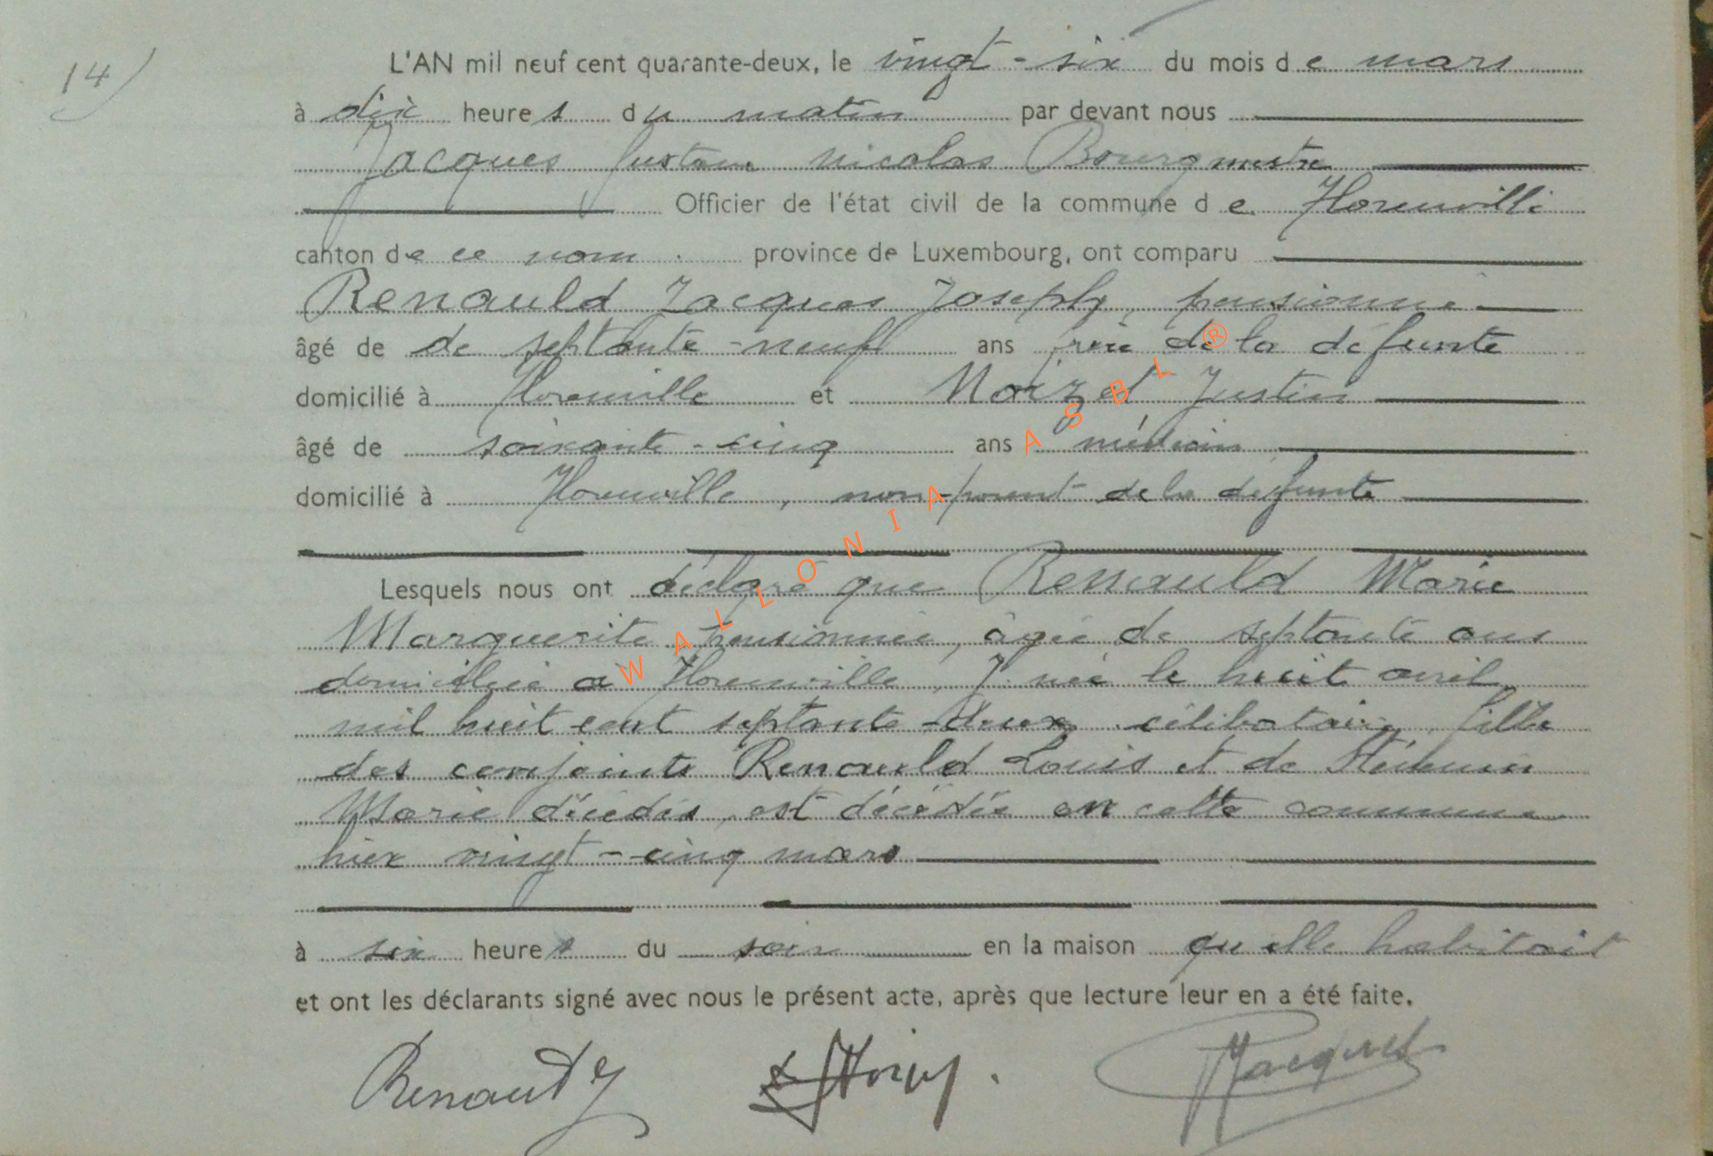 14)
L'AN mil neuf cent quarante-deux, le vingt-six du mois de mars
à dix heures du matin par devant nous
Jacques nicolas Bourgmestre
Officier de l'état civil de la commune de Florenville
canton de ce nom. province de Luxembourg, ont comparu
Renauld Jacques Joseph, pensionné
âgé de de septante-neuf ans frère de la défunte
domicilié à Florenville et Noizet Justin
âgé de soixante-cinq ans médecin
domicilié à Florenville, non-parent de la défunte
Lesquels nous ont déclaré que Renauld Marie
Marguerite pensionnée, âgée de septante ans
domiciliée à Florenville, y née le huit avril
mil huit cent septante-deux célibataire, fille
des conjoints Renauld Louis et de
Marie décédés, est décédée en cette commune
hier vingt-cinq mars
à six heures du soir en la maison qu'elle habitait
et ont les déclarants signé avec nous le présent acte, après que lecture leur en a été faite.
Renauld
WALLONIA ASBL ®